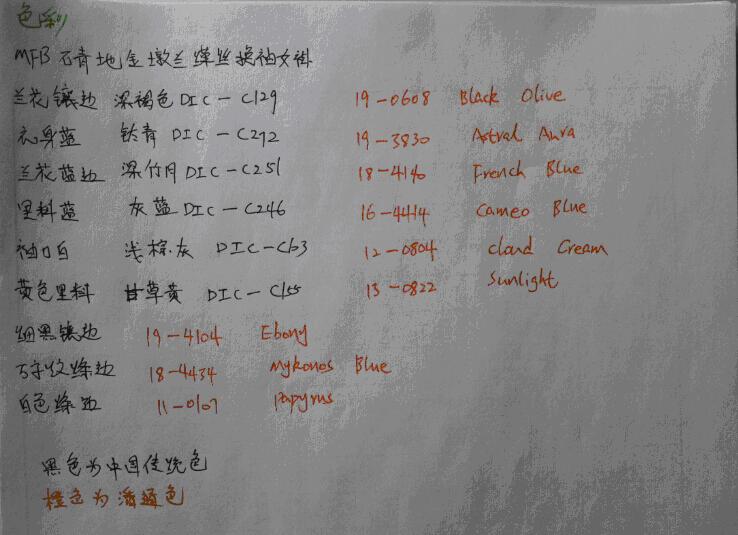 色彩
MFB 石青地金墩兰缂丝挽袖女褂
兰花镶边 深褐色 DIC-C129 19-0608 Black Olive
衣身蓝 钛青 DIC-C292 19-3830 Astral Aura
兰花蓝边 深竹月 DIC-C251 18-4140 French Blue
里料蓝 灰蓝 DIC-C246 16-4414 Cameo Blue
袖口白 浅棕灰 DIC-C163 12-0804 Cloud Cream
黄色里料 甘草黄 DIC-C155 13-0822 Sunlight
细黑镶边 19-4104 Ebony
万字纹绦边 18-4434 Mykonos Blue
白色绦边 11-0107 Papyrus
黑色为中国传统色
橙色为潘通色